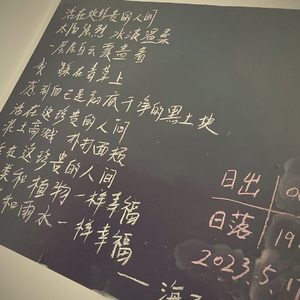 活在这珍贵的人间
太阳强烈 水波温柔
一层层白云覆盖着
我 踩在青草上
感到自己是彻底干净的黑土块
活在这珍贵的人间
泥土高溅 扑打面颊
在这珍贵的人间
类和植物一样幸福
和雨水一样幸福
—海
日出 0
日落 19
2023.5.1